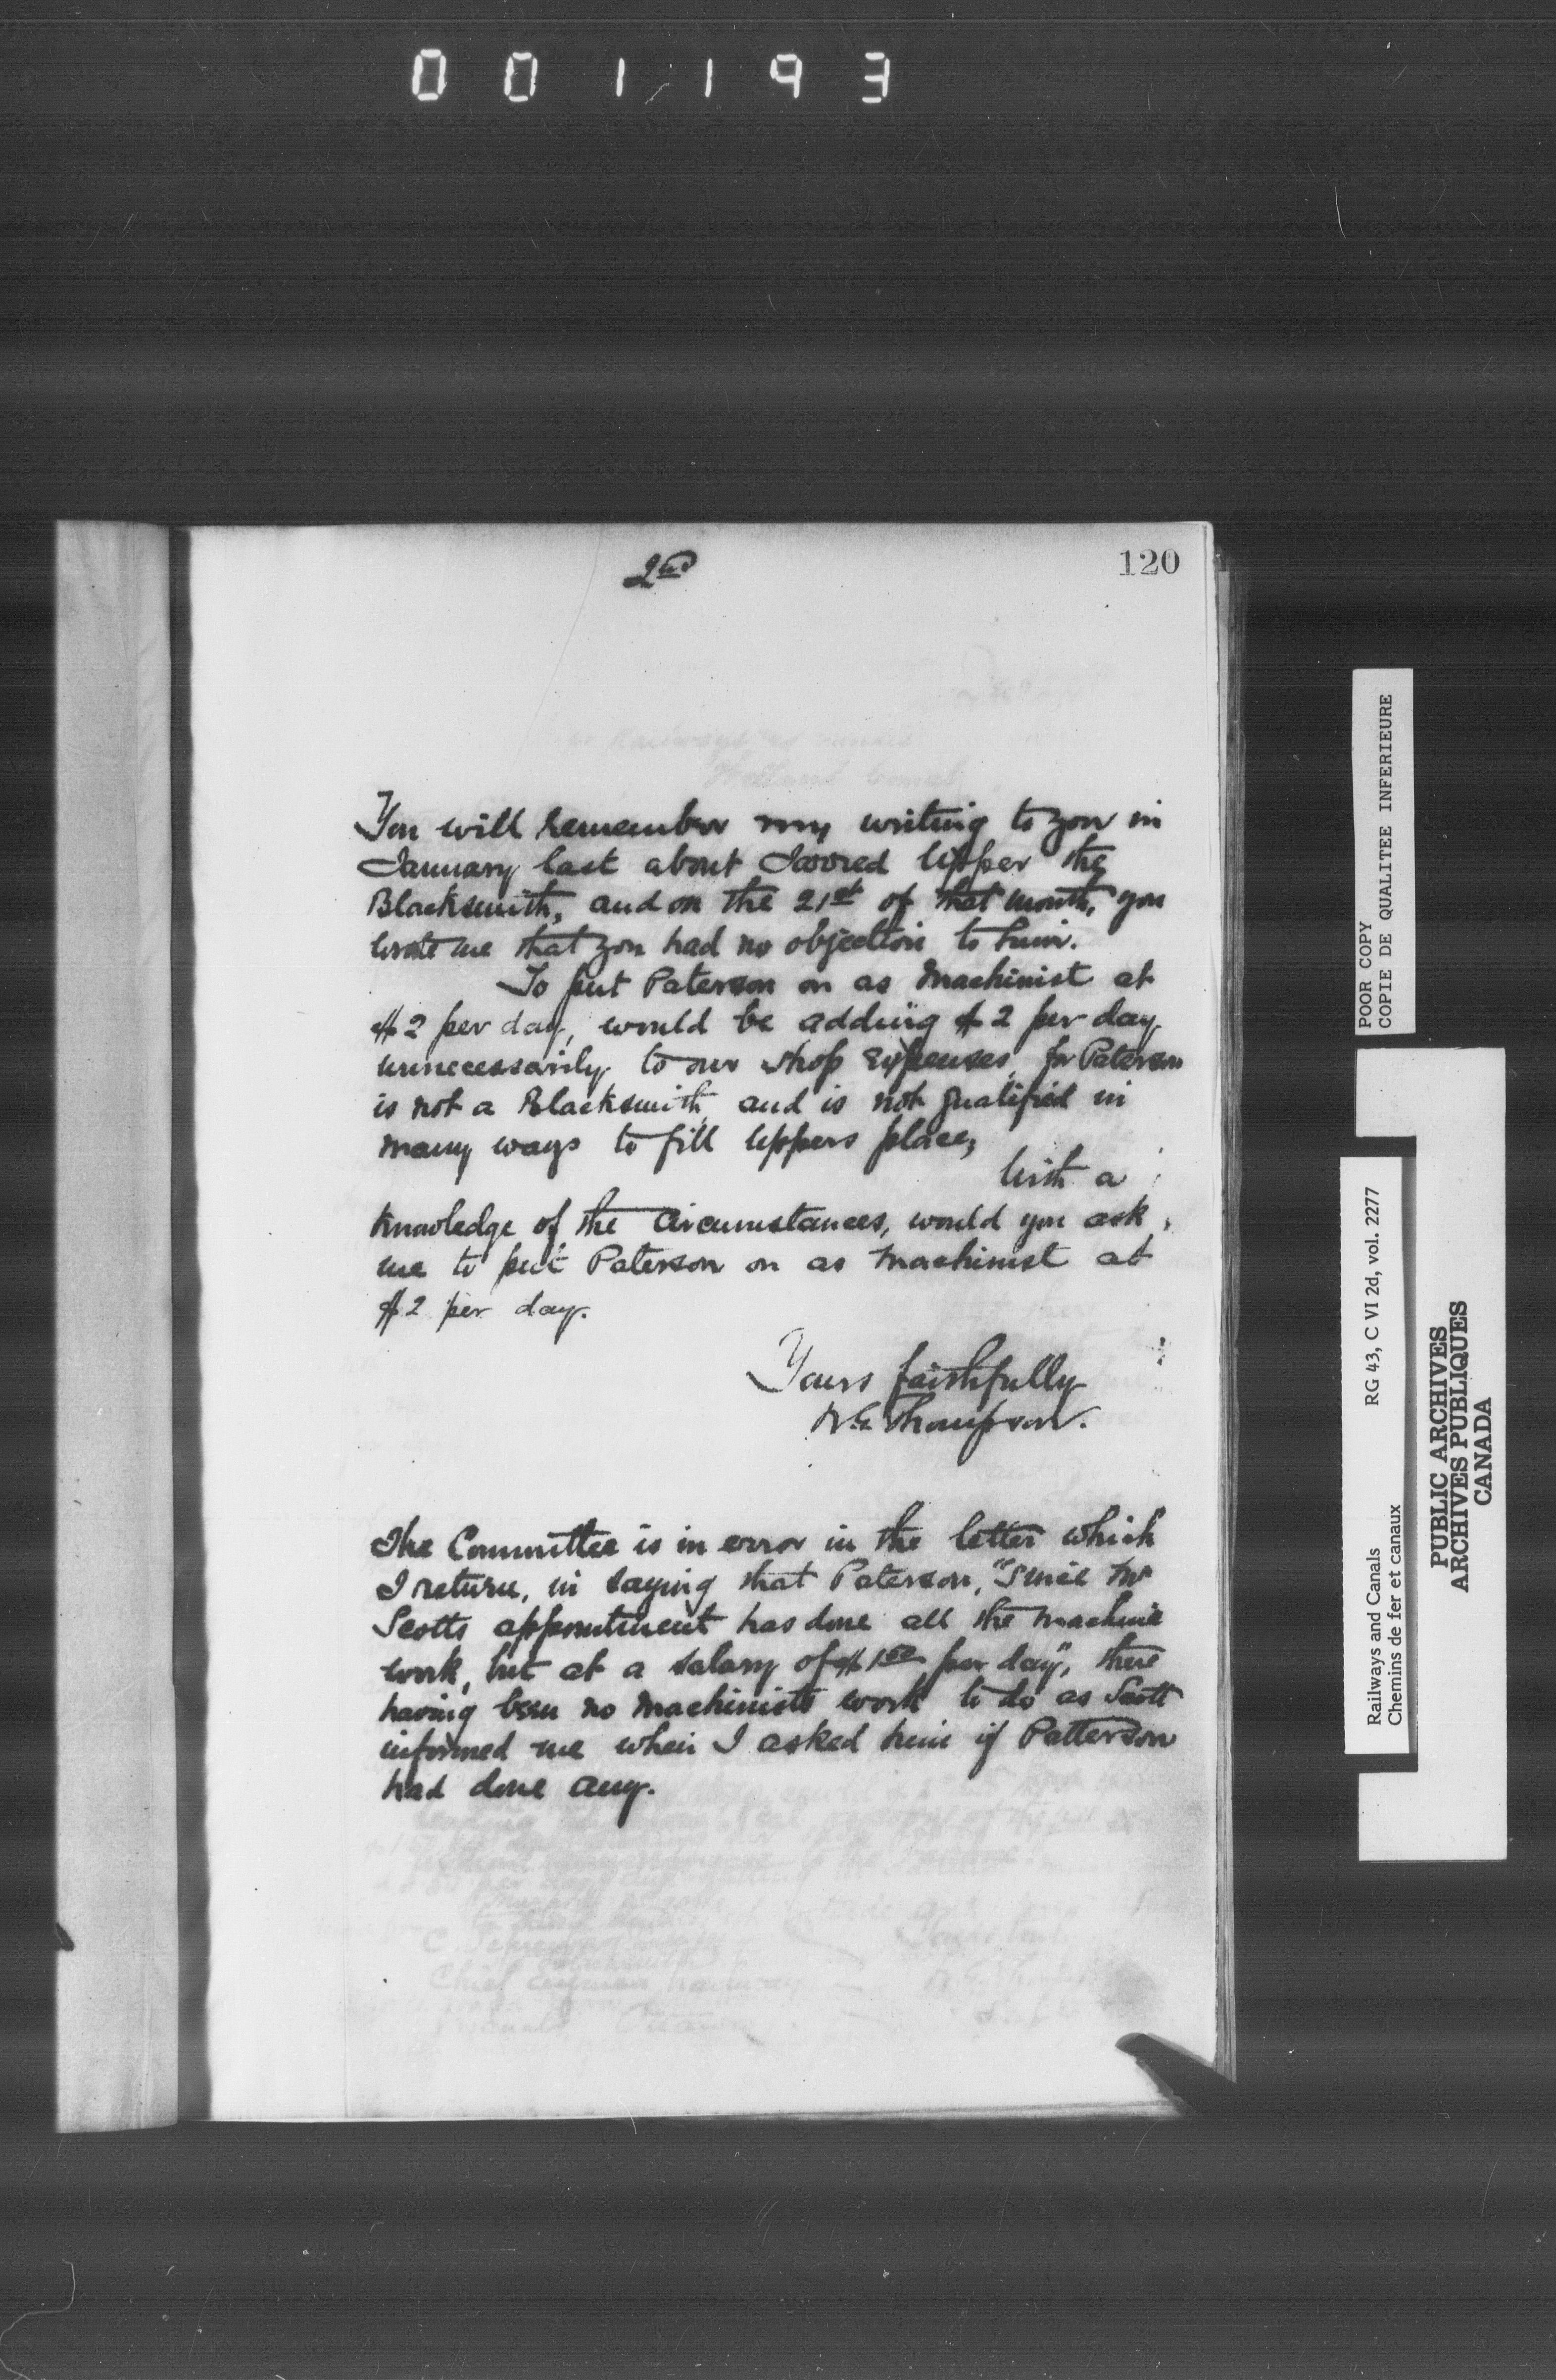 001193
2nd
120
You will remember my writing to you in
January last about Upper the
Blacksmith, and on the 21st of that month, you
wrote me that you had no objection to him.
To put Paterson on as Machinist at
$2 per day, would be adding $2 per day
unnecessarily to our shop expenses, for Paterson
is not a Blacksmith, and is not qualified in
many ways to fill Uppers place,
With a
knowledge of the circumstances, would you ask
me to put Paterson on as Machinist at
$2 per day.
Yours faithfully
Thompson.
The Committee is in error in the letter which
I return, in saying that Paterson, "Since Mr
Scotts appointment has done all the machine
work, but at a salary of $1 per day", there
having been no Machinists work to do as Scott
informed me when I asked him if Patterson
had done any.
POOR COPY
COPIE DE QUALITEE INFERIEURE
Railways and Canals RG 43, C VI 2d, vol. 2277
Chemins de fer et canaux
PUBLIC ARCHIVES
ARCHIVES PUBLIQUES
CANADA